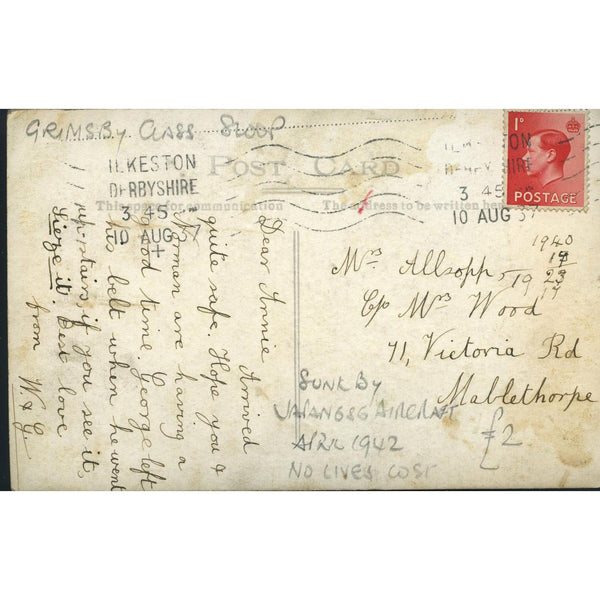 GRIMSBY CLASS SLOOP
ILKESTON
DERBYSHIRE
3 45
10 AUG 37
POST CARD
This space for communication
The address to be written here
3 45
10 AUG 37
1D
POSTAGE
Dear Annie Arrived
quite safe. Hope you &
Norman are having a
good time George left
his belt when he went
upstairs, if you see it,
Sieze it. Best love
from W. & G.
Mrs Allsopp,
C/o Mrs Wood
71, Victoria Rd
Mablethorpe
1940
19
19 23
17
SUNK BY
JAPANESE AIRCRAFT
APRIL 1942
NO LIVES LOST
£2